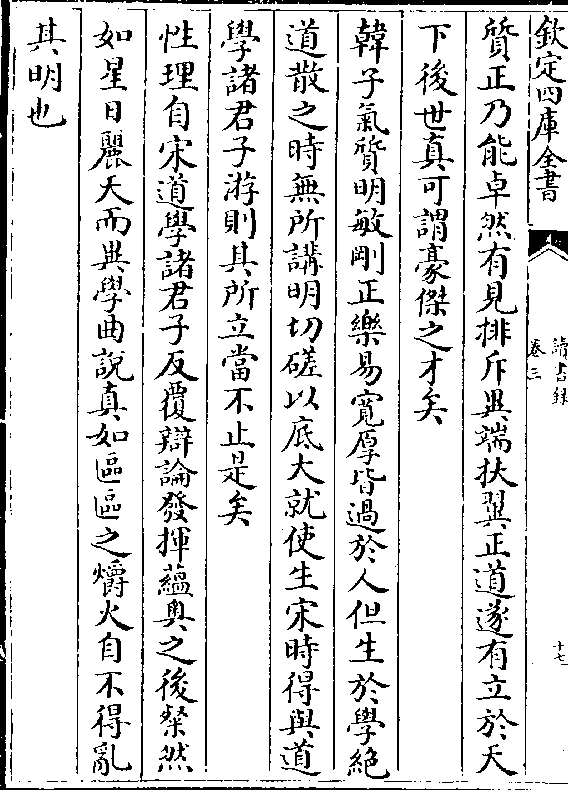 欽定四庫全書
讀書録
卷三
十七
質正乃能卓然有見排斥異端扶翼正道遂有立於天
下後世真可謂豪傑之才矣
韓子氣質明敏剛正樂易寬厚皆過於人但生於學絶
道散之時無所講明切磋以底大就使生宋時得與道
學諸君子游則其所立當不止是矣
性理自宋道學諸君子反覆辯論發揮蘊奥之後粲然
如星日麗天而異學曲説真如區區之爝火自不得亂
其明也